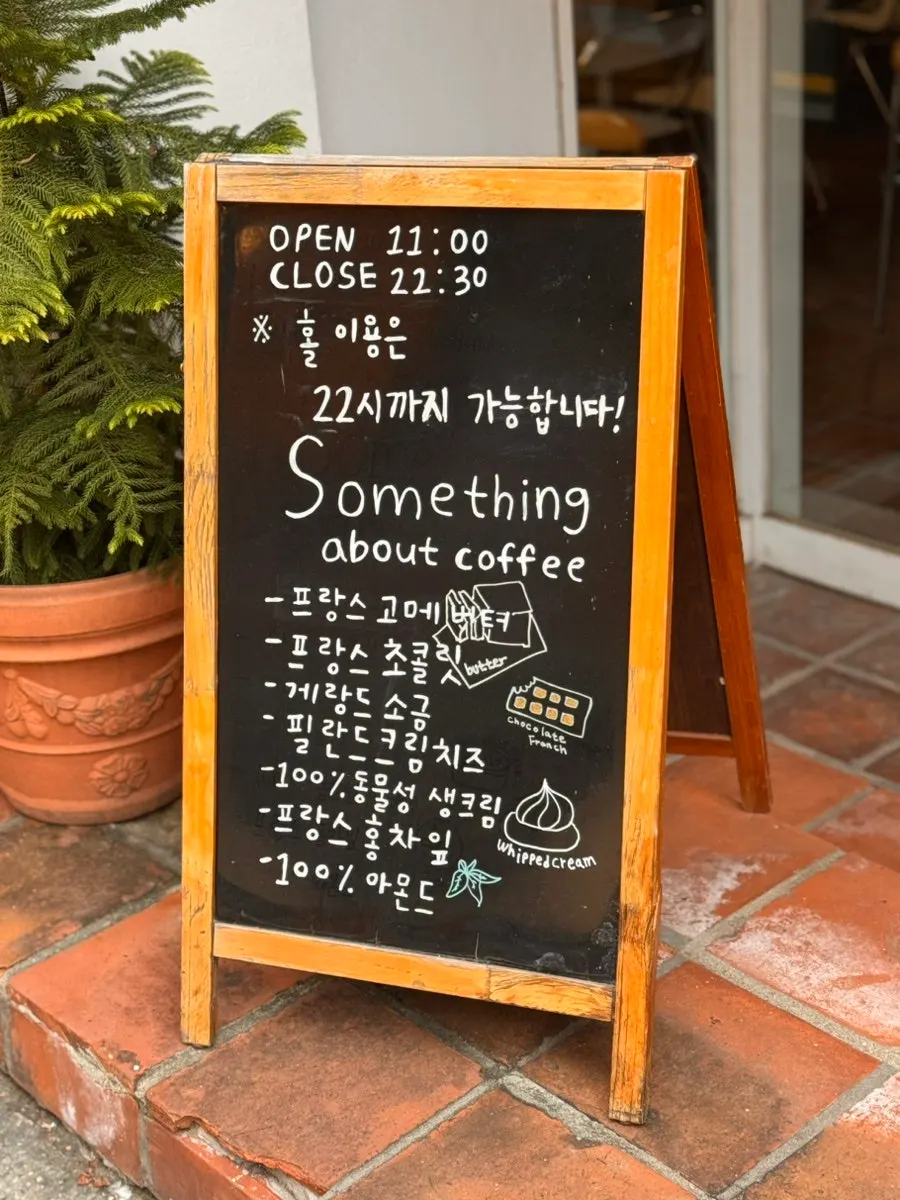 OPEN 11:00
CLOSE 22:30
※ 홀 이용은
22시까지 가능합니다!
Something
about coffee
-프랑스 고메 버터
butter
-프랑스 초콜릿
-게랑드 소금
chocolate
French
-필란드크림치즈
-100%동물성 생크림
whippedcream
-프랑스 홍차 잎
-100% 아몬드